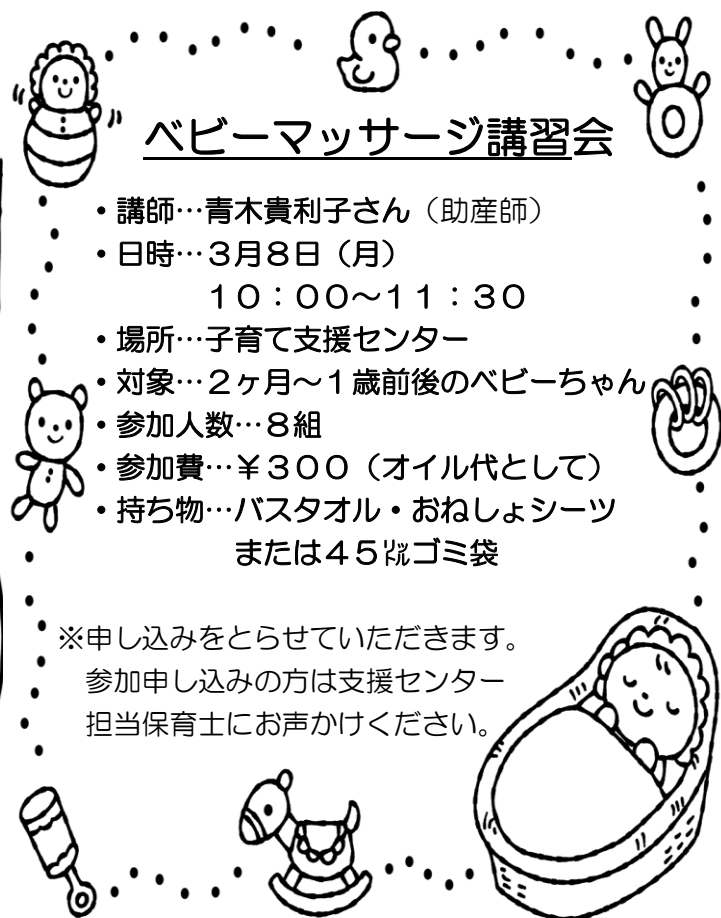 ベビーマッサージ講習会
・講師…青木貴利子さん（助産師）
・日時…３月８日（月）
１０：００～１１：３０
・場所…子育て支援センター
・対象…２ヶ月～１歳前後のベビーちゃん
・参加人数…８組
・参加費…￥３００（オイル代として）
・持ち物…バスタオル・おねしょシーツ
または４５㍑ゴミ袋
※申し込みをとらせていただきます。
参加申し込みの方は支援センター
担当保育士にお声かけください。